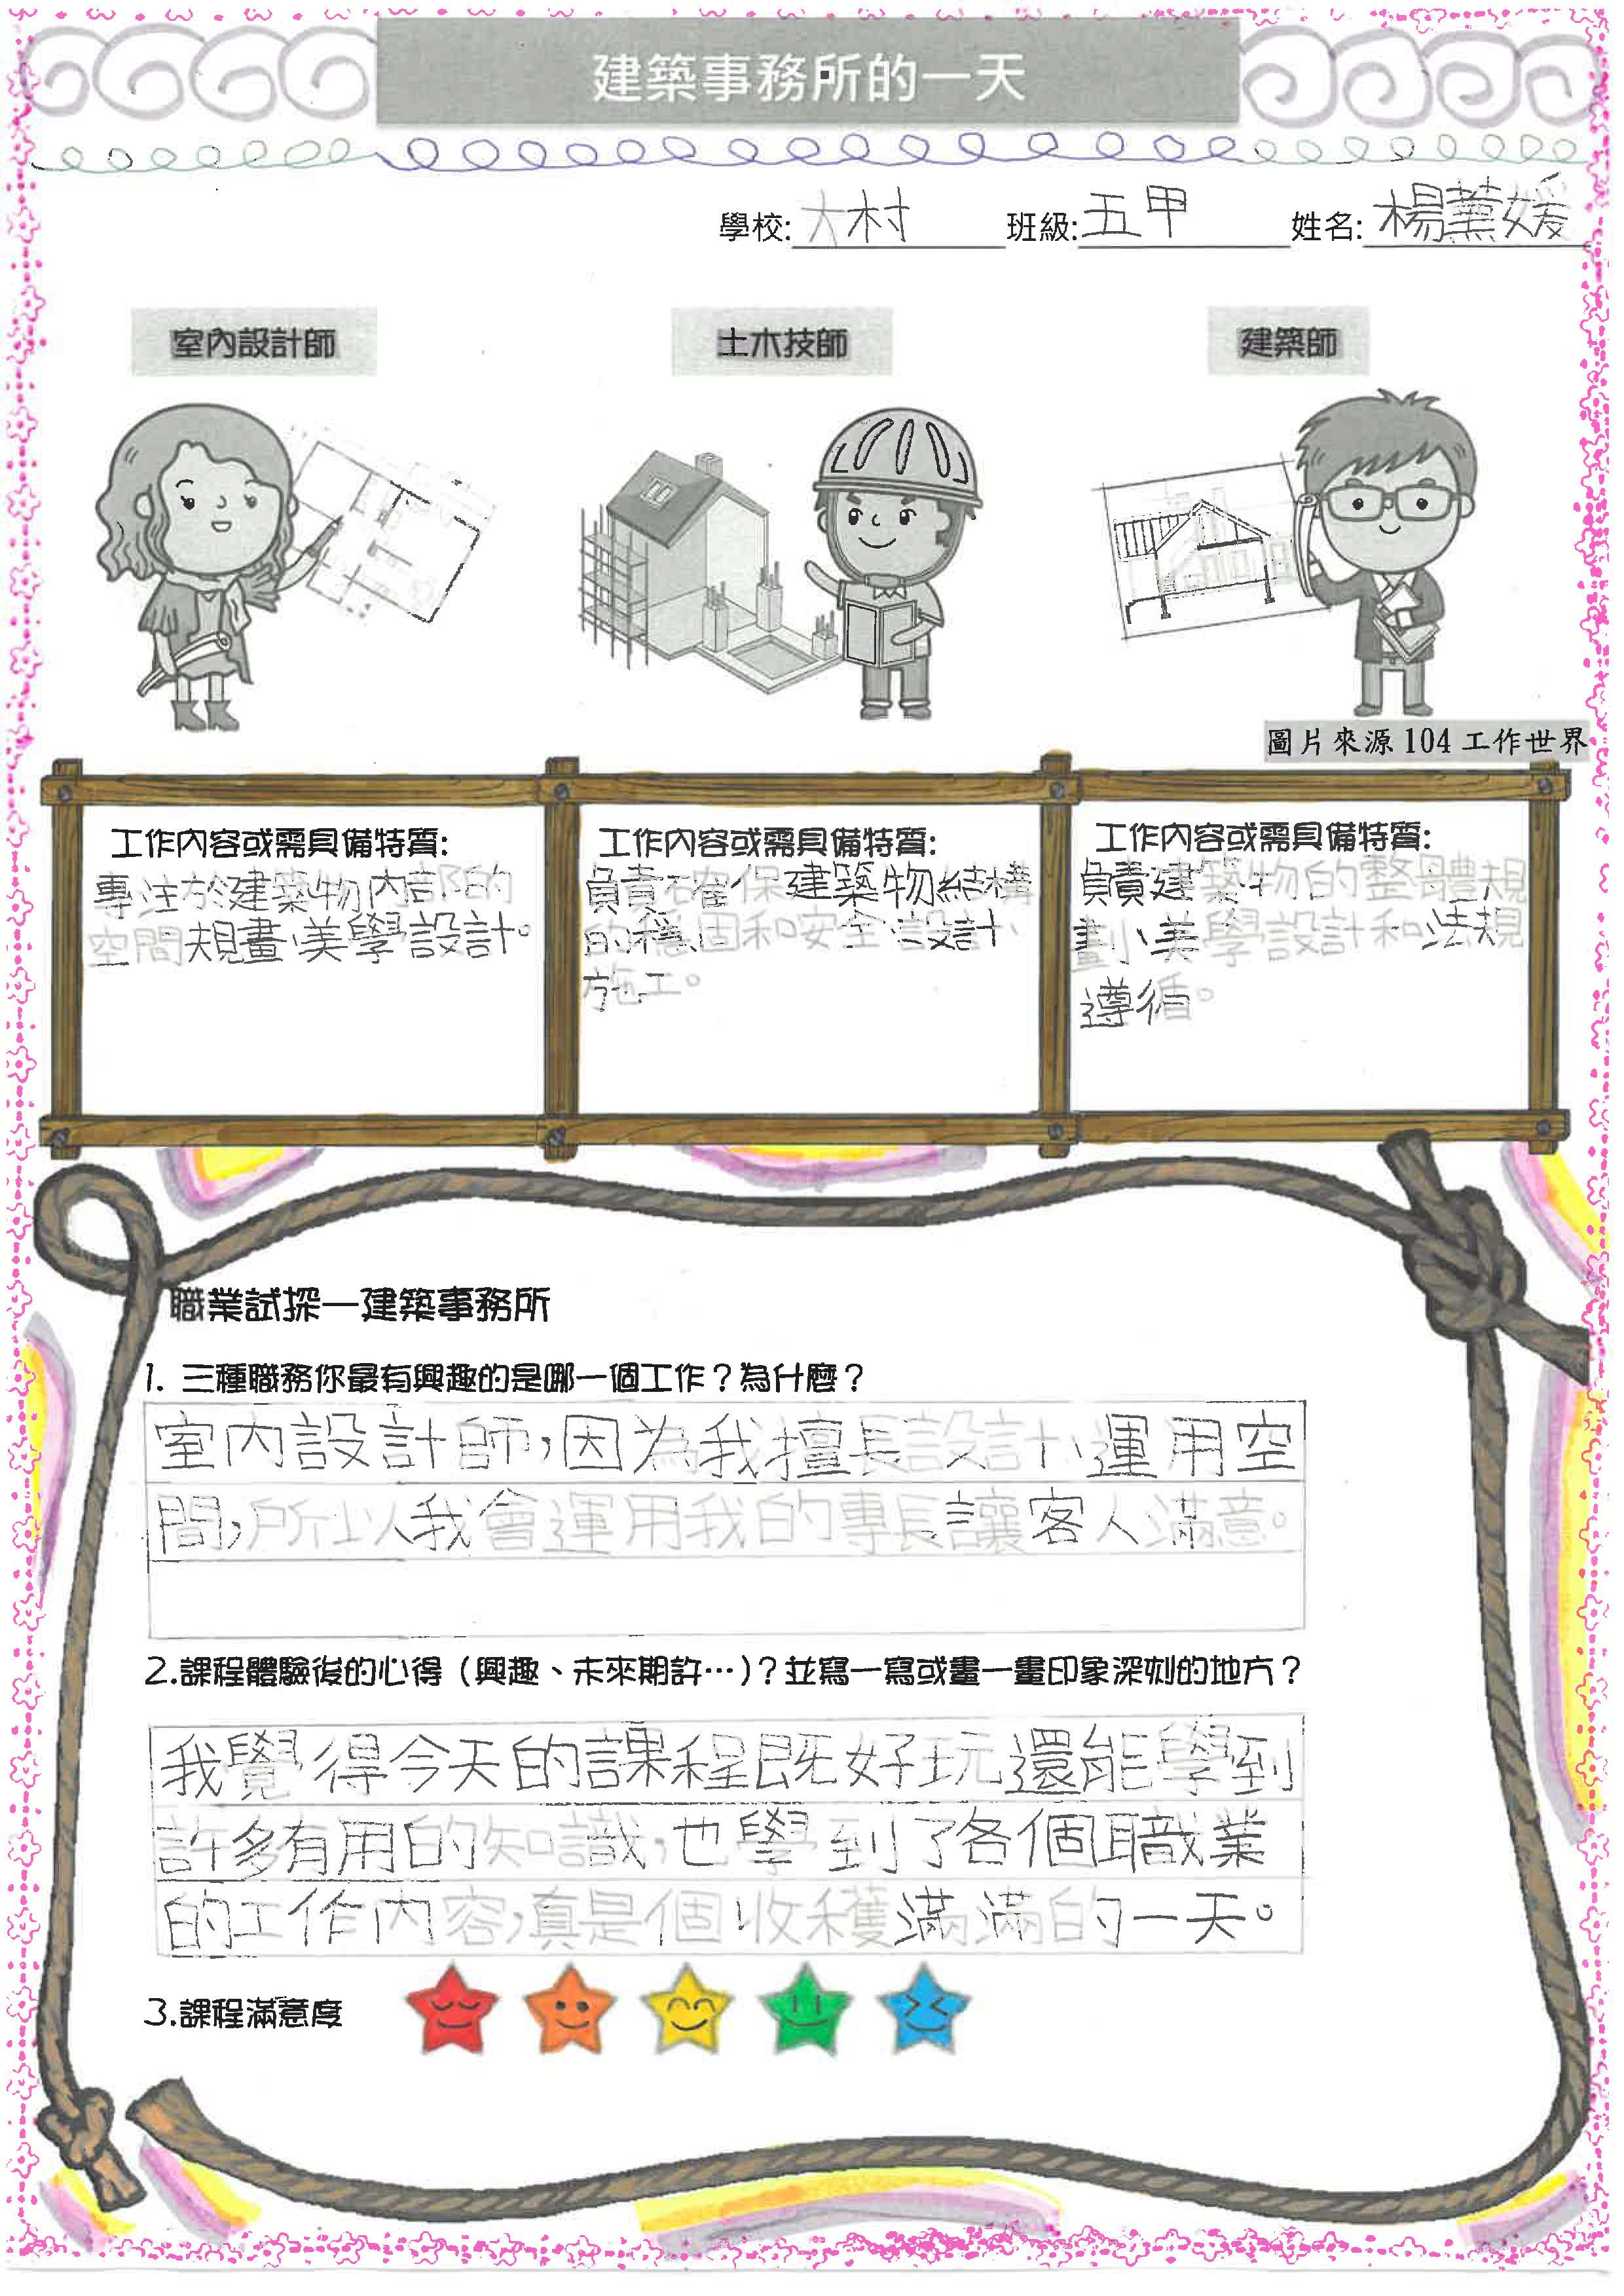 建築事務所的一天
學校:大村 班級:五甲 姓名:楊薰媛
室內設計師 土木技師 建築師
圖片來源 104 工作世界
工作內容或需具備特質:
專注於建築物內部的
空間規畫、美學設計。
工作內容或需具備特質:
負責確保建築物結構
的穩固和安全、設計、
施工。
工作內容或需具備特質:
負責建築物的整體規
劃、美學設計和法規
遵循。
職業試探—建築事務所
1. 三種職務你最有興趣的是哪一個工作？為什麼？
室內設計師，因為我擅長設計、運用空
間，所以我會運用我的專長讓客人滿意。
2.課程體驗後的心得（興趣、未來期許…）？並寫一寫或畫一畫印象深刻的地方？
我覺得今天的課程既好玩還能學到
許多有用的知識，也學到了各個職業
的工作內容，真是個收穫滿滿的一天。
3.課程滿意度